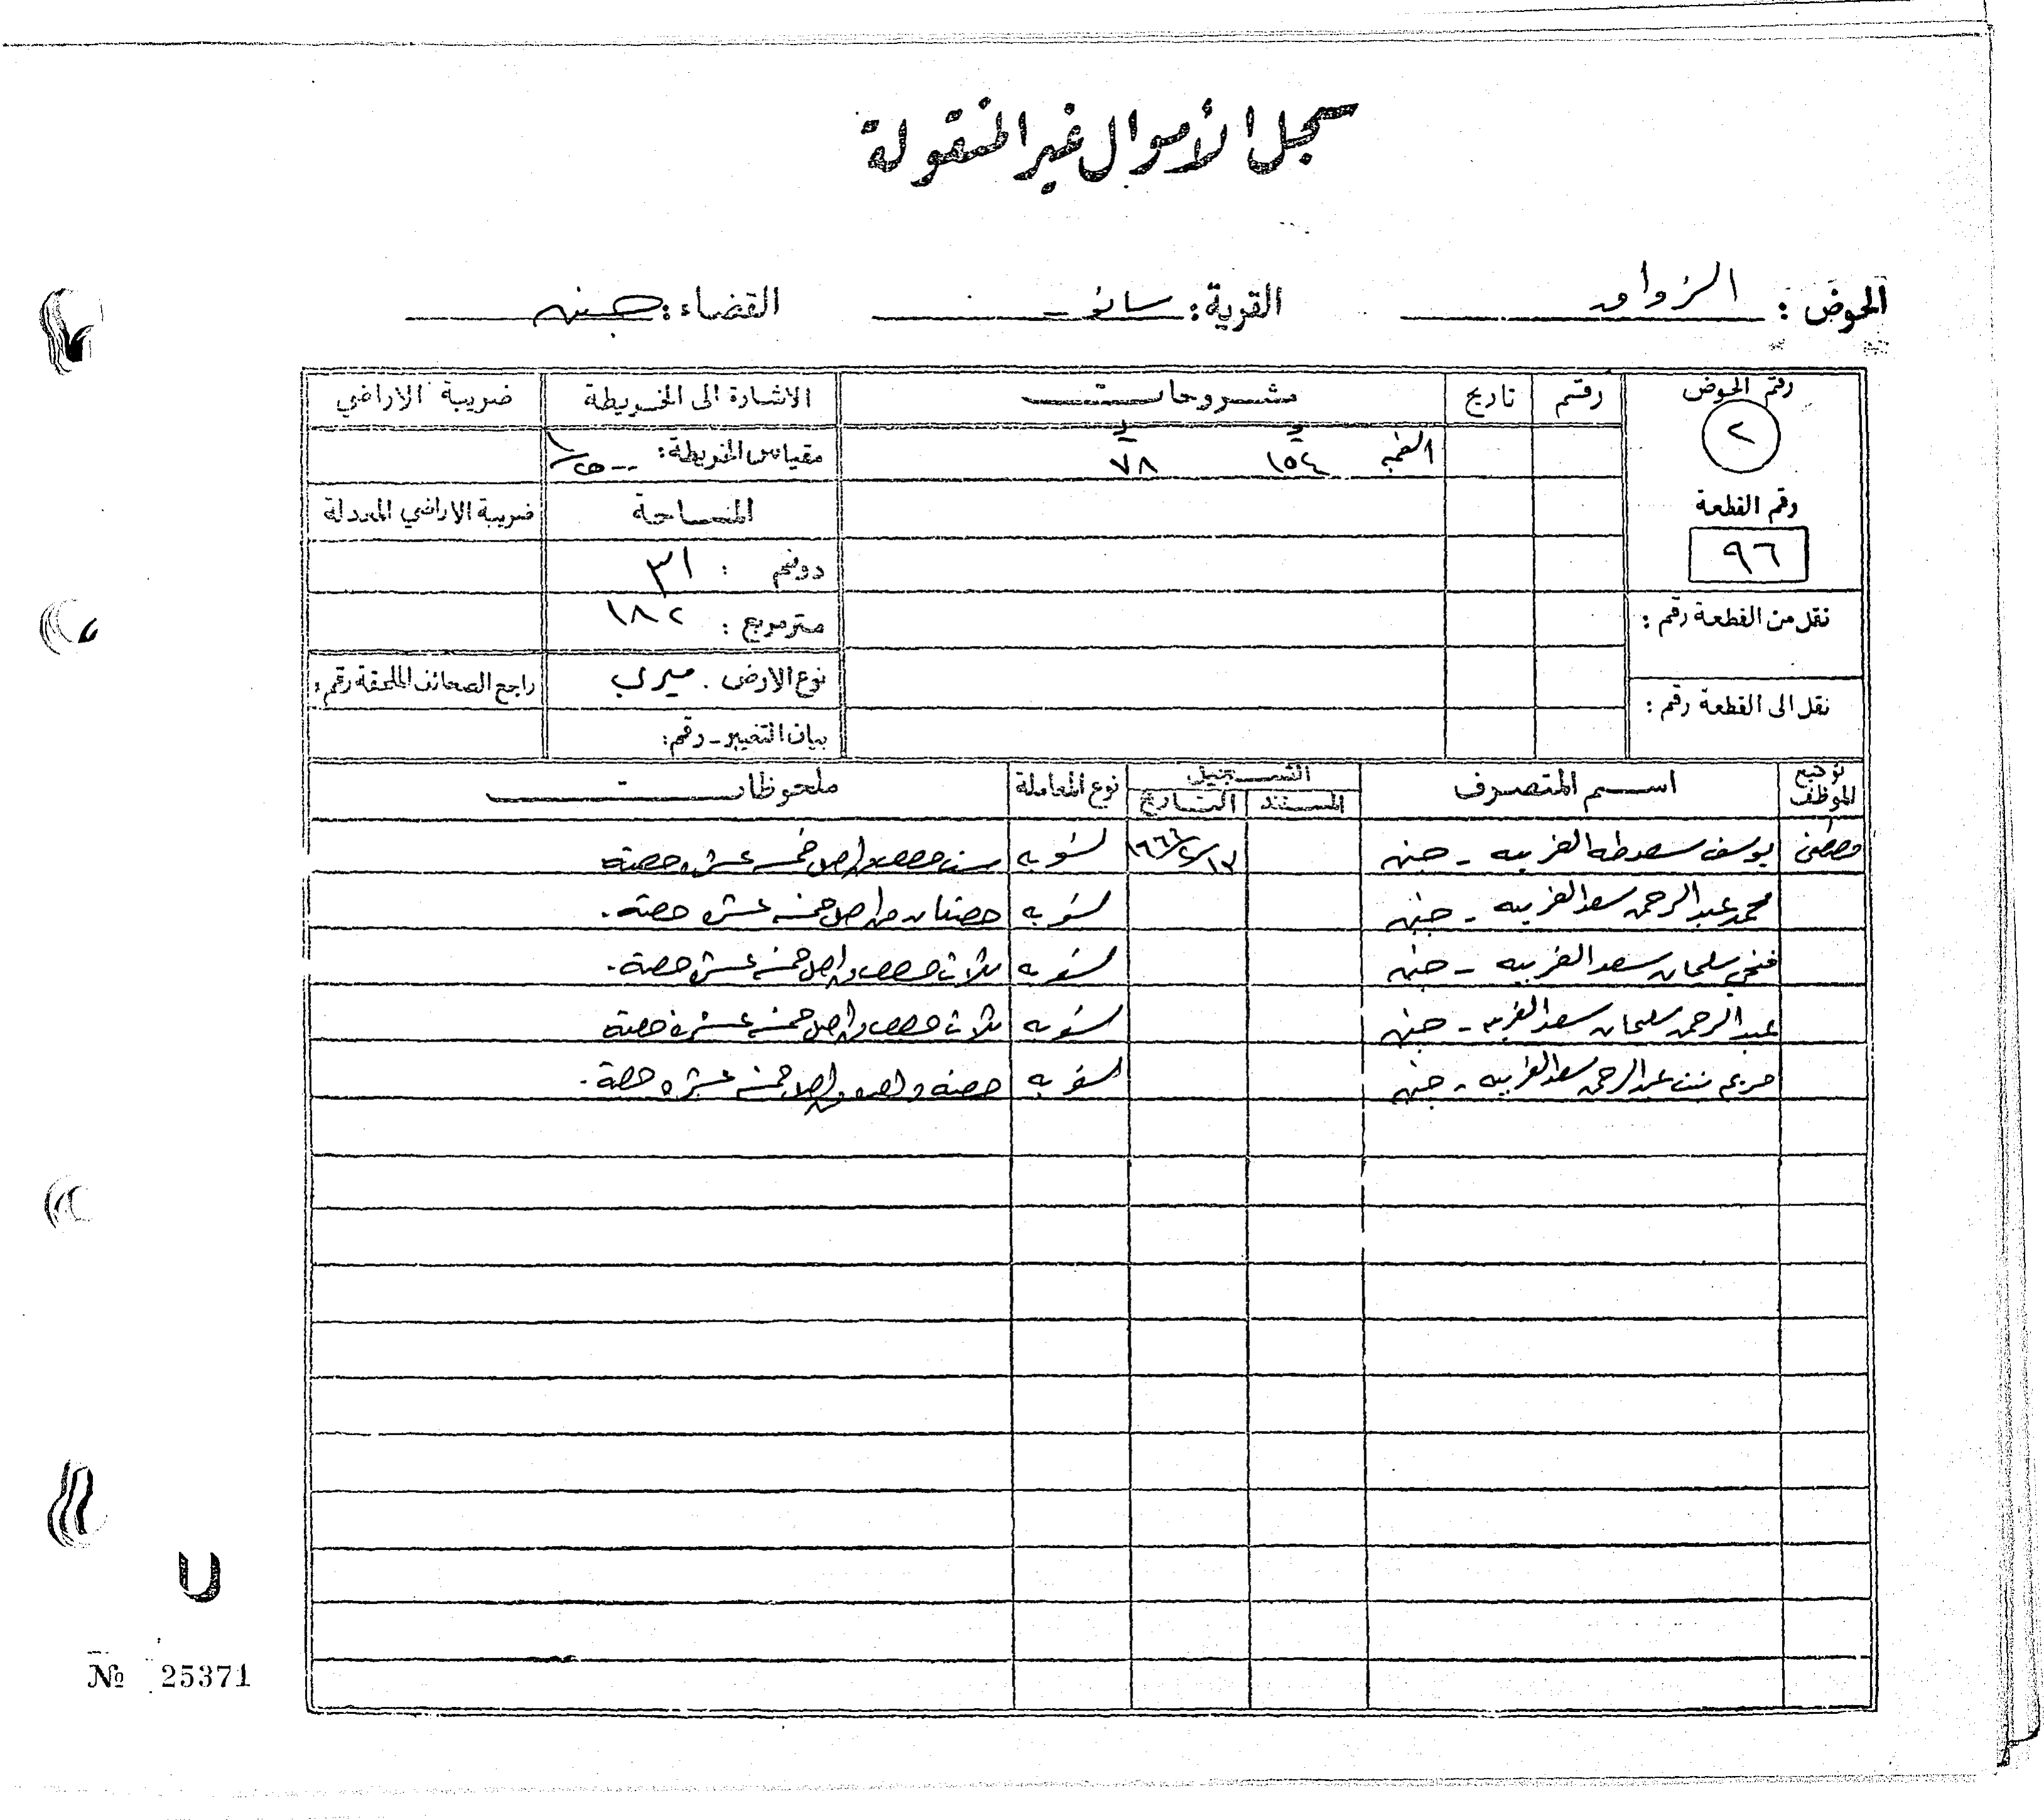 سجل الأموال غير المنقولة
الحوض : القرية : سانور القضاء : جنين
رقم الحوض رقم تاريخ مشروحات الاشارة الى الخريطة ضريبة الاراضي
٢ د ف
القيمة ١٥٤ ٧٨ مقياس الخريطة : ١/٢٥٠٠
رقم القطعة المساحة ضريبة الاراضي المعدلة
٩٦ دونم : ٣١
نقل من القطعة رقم : متر مربع : ١٨٢
نقل الى القطعة رقم : نوع الارض . ميري راجع الصحائف الملحقة رقم :
بيان التغيير - رقم :
توقيع الموظف اسم المتصرف التسجيل نوع المعاملة ملحوظات
المستند التاريخ
مصطفى يوسف سعد طه الغريبه - جنين تسويه ست حصص من اصل خمسة عشره حصته
محمد عبد الرحمن سعد الغريبه - جنين تسويه حصتان من اصل خمسة عشره حصته .
فتحي سليمان سعد الغريبه - جنين تسويه ثلاث حصص من اصل خمسة عشر حصته .
عبد الرحمن سليمان سعد الغريبه - جنين تسويه ثلاث حصص من اصل خمسة عشره حصته
مريم بنت عبد الرحمن سعد الغريبه - جنين تسويه حصته واحده من اصل خمسة عشره حصة .
U
№ 25371